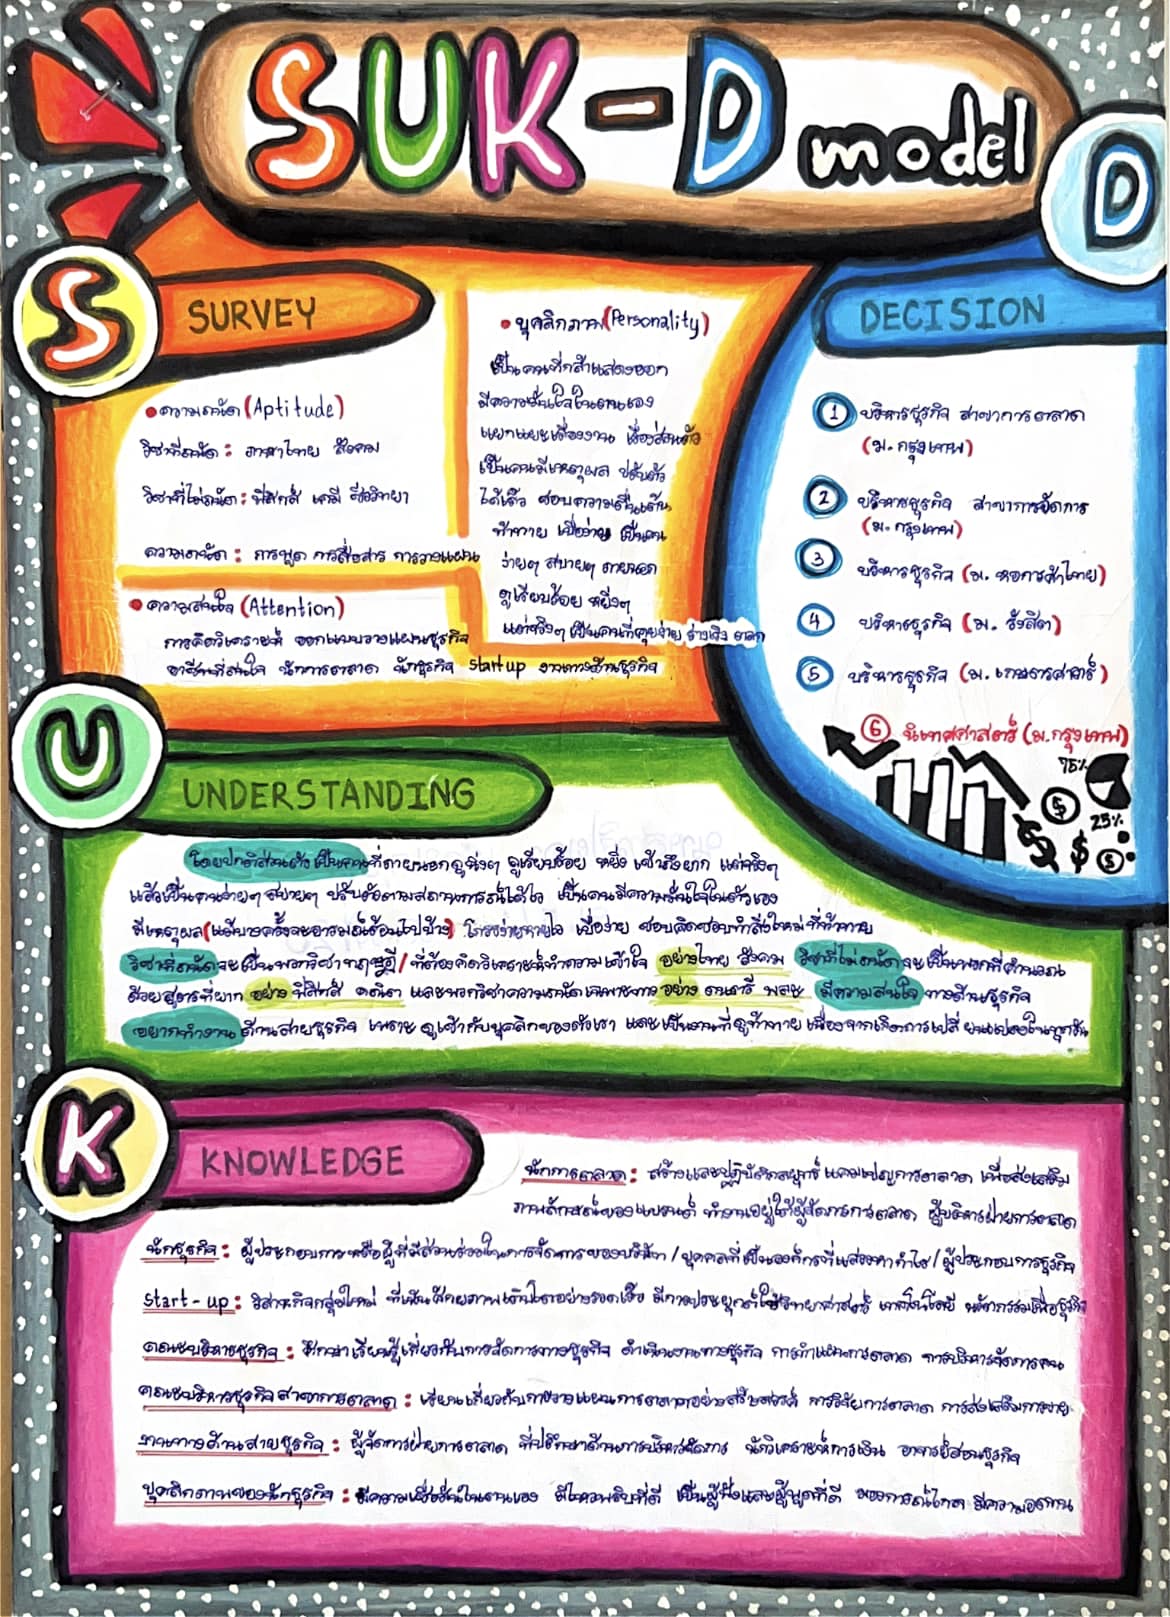 SUK-D model
S
SURVEY
• ความถนัด (Aptitude)
วิชาที่ถนัด : ภาษาไทย สังคม
วิชาที่ไม่ถนัด : ฟิสิกส์ เคมี ชีววิทยา
ความถนัด : การพูด การสื่อสาร การวางแผน
• ความสนใจ (Attention)
การคิดวิเคราะห์ ออกแบบวางแผนธุรกิจ
อาชีพที่สนใจ นักการตลาด นักธุรกิจ startup งานทางด้านธุรกิจ
• บุคลิกภาพ (Personality)
เป็นคนที่กล้าแสดงออก
มีความมั่นใจในตนเอง
แยกแยะเรื่องงาน เรื่องส่วนตัว
เป็นคนมีเหตุผล ปรับตัว
ได้เร็ว ชอบความตื่นเต้น
ท้าทาย เบื่อง่าย เป็นคน
ง่ายๆ สบายๆ ภายนอก
ดูเรียบร้อย หยิ่งๆ
แต่จริงๆ เป็นคนที่คุยง่าย ร่าเริง ตลก
D
DECISION
1 บริหารธุรกิจ สาขาการตลาด
(ม.กรุงเทพ)
2 บริหารธุรกิจ สาขาการจัดการ
(ม.กรุงเทพ)
3 บริหารธุรกิจ (ม. หอการค้าไทย)
4 บริหารธุรกิจ (ม. รังสิต)
5 บริหารธุรกิจ (ม. เกษตรศาสตร์)
6 นิเทศศาสตร์ (ม.กรุงเทพ)
75%
$
25%
$ $ $
U
UNDERSTANDING
โดยปกติส่วนตัวเป็นคนที่ภายนอกดูนิ่งๆ ดูเรียบร้อย หยิ่ง เข้าถึงยาก แต่จริงๆ
แล้วเป็นคนง่ายๆ สบายๆ ปรับตัวตามสถานการณ์ได้ไว เป็นคนมีความมั่นใจในตัวเอง
มีเหตุผล (แม้บางครั้งจะอารมณ์ร้อนไปบ้าง) โกรธง่ายหายไว เบื่อง่าย ชอบคิดชอบทำสิ่งใหม่ที่ท้าทาย
วิชาที่ถนัดจะเป็นพวกวิชาทฤษฎี/ที่ต้องคิดวิเคราะห์ทำความเข้าใจ อย่างไทย สังคม วิชาที่ไม่ถนัดจะเป็นพวกที่คำนวณ
ด้วยสูตรที่ยาก อย่าง ฟิสิกส์ คณิต และพวกวิชาความถนัดเฉพาะทาง อย่าง ดนตรี พละ มีความสนใจ ทางด้านธุรกิจ
อยากทำงาน ด้านสายธุรกิจ เพราะ ดูเข้ากับบุคลิกของตัวเรา และเป็นงานที่ดูท้าทาย เนื่องจากเกิดการเปลี่ยนแปลงในทุกวัน
K
KNOWLEDGE
นักการตลาด : สร้างและปฏิบัติกลยุทธ์ แคมเปญการตลาด เพื่อส่งเสริม
ภาพลักษณ์ของแบรนด์ ทำงานอยู่ใต้ผู้จัดการการตลาด ผู้บริหารฝ่ายการตลาด
นักธุรกิจ : ผู้ประกอบการหรือผู้ที่มีส่วนร่วมในการจัดการของบริษัท / บุคคลที่เป็นองค์กรที่แสวงหากำไร / ผู้ประกอบการธุรกิจ
start-up : วิสาหกิจกลุ่มใหม่ ที่เน้นศักยภาพเติบโตอย่างรวดเร็ว มีการประยุกต์ใช้วิทยาศาสตร์ เทคโนโลยี นวัตกรรมเพื่อธุรกิจ
คณะบริหารธุรกิจ : ศึกษาเรียนรู้เกี่ยวกับการจัดการทางธุรกิจ ดำเนินงานทางธุรกิจ การทำแผนการตลาด การบริหารจัดการคน
คณะบริหารธุรกิจสาขาการตลาด : เรียนเกี่ยวกับการวางแผนการตลาดอย่างสร้างสรรค์ การวิจัยการตลาด การส่งเสริมการขาย
งานทางด้านสายธุรกิจ : ผู้จัดการฝ่ายการตลาด ที่ปรึกษาด้านการบริหารจัดการ นักวิเคราะห์การเงิน อาจารย์สอนธุรกิจ
บุคลิกภาพของนักธุรกิจ : มีความเชื่อมั่นในตนเอง มีไหวพริบที่ดี เป็นผู้ฟังและผู้พูดที่ดี มองการณ์ไกล มีความอดทน